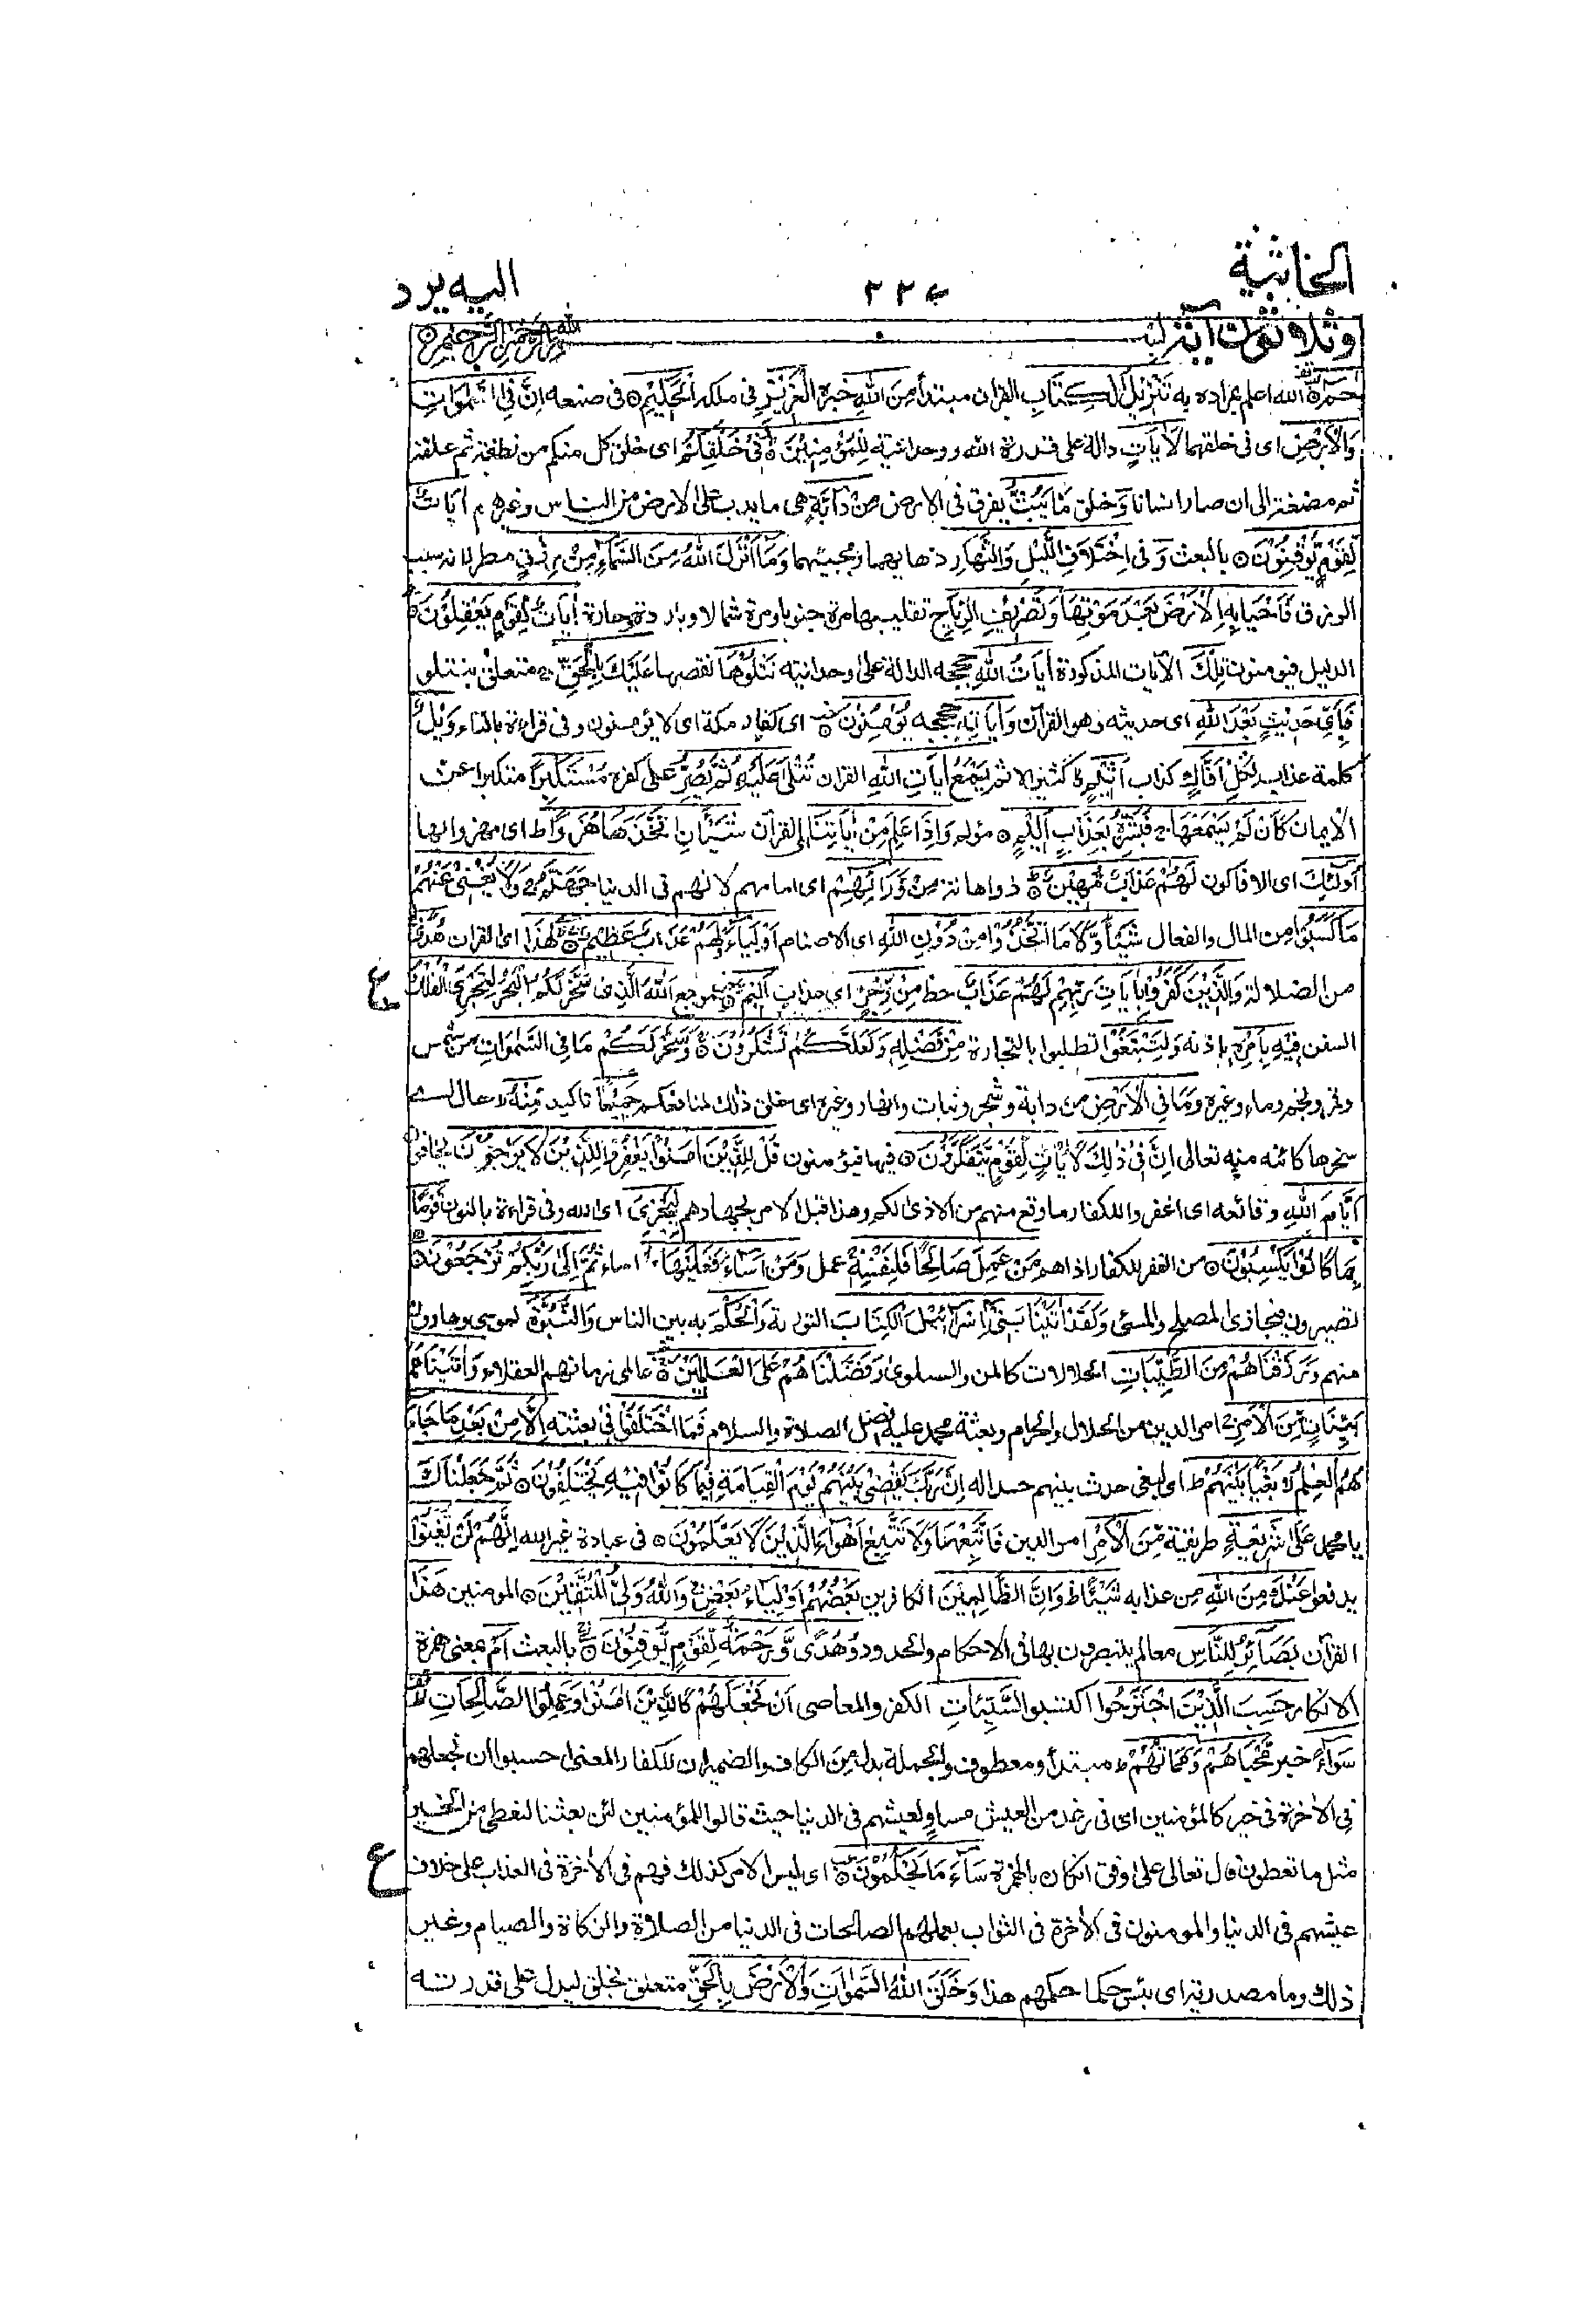 الجاثية ٤٢٢ اليه يرد
وثلاثون آية بسم الله الرحمن الرحيم
حٰمٓ الله اعلم بمراده به تَنْزِيْلُ الْكِتَابِ القران مبتدأ مِنَ اللهِ خبره الْعَزِيْزِ فى ملكه الْحَكِيْمِ ۝ فى صنعه اِنَّ فِى السَّمٰوَاتِ
وَالْاَرْضِ اى فى خلقهما لَاٰيَاتٍ دالة على قدرة الله ووحدانيته لِلْمُؤْمِنِيْنَ ۝ وَفِىْ خَلْقِكُمْ اى خلق كل منكم من نطفة ثم علقة
ثم مضغة الى ان صار انسانا وَخلق مَا يَبُثُّ يفرق فى الارض مِنْ دَآبَّةٍ هى ما يدب على الارض من الناس وغيرهم اٰيَاتٌ
لِقَوْمٍ يُّوْقِنُوْنَ ۝ بالبعث وَفى اخْتِلَافِ اللَّيْلِ وَالنَّهَارِ ذهابهما ومجيئهما وَمَا اَنْزَلَ اللهُ مِنَ السَّمَآءِ مِنْ رِّزْقٍ مطر لانه سبب
الرزق فَاَحْيَا بِهِ الْاَرْضَ بَعْدَ مَوْتِهَا وَتَصْرِيْفِ الرِّيَاحِ تقليبها مرة جنوبا ومرة شمالا وباردة وحارة اٰيَاتٌ لِّقَوْمٍ يَعْقِلُوْنَ ۝
الدليل فيؤمنون تِلْكَ الآيات المذكورة اٰيَاتُ اللهِ حججه الدالة على وحدانيته نَتْلُوْهَا نقصها عَلَيْكَ بِالْحَقِّ ج متعلق بنتلو
فَبِاَىِّ حَدِيْثٍ بَعْدَ اللهِ اى حديثه وهو القرآن وَاٰيَاتِهٖ حججه يُؤْمِنُوْنَ ۝ اى كفار مكة اى لا يؤمنون وفى قراءة بالتاء وَيْلٌ
كلمة عذاب لِّكُلِّ اَفَّاكٍ كذاب اَثِيْمٍ ۝ كثير الاثم يَسْمَعُ اٰيَاتِ اللهِ القران تُتْلٰى عَلَيْهِ ثُمَّ يُصِرُّ على كفره مُسْتَكْبِرًا متكبرا عن
الايمان كَاَنْ لَّمْ يَسْمَعْهَا ج فَبَشِّرْهُ بِعَذَابٍ اَلِيْمٍ ۝ مؤلم وَاِذَا عَلِمَ مِنْ اٰيَاتِنَا اى القرآن شَيْئًا نِ اتَّخَذَهَا هُزُوًا ط اى مهزوا بها
اُولٰٓئِكَ اى الافاكون لَهُمْ عَذَابٌ مُّهِيْنٌ ۝ ذو اهانة مِنْ وَّرَآئِهِمْ اى امامهم لانهم فى الدنيا جَهَنَّمُ ج وَلَا يُغْنِىْ عَنْهُمْ
مَا كَسَبُوْا من المال والفعال شَيْئًا وَّلَا مَا اتَّخَذُوْا مِنْ دُوْنِ اللهِ اى الاصنام اَوْلِيَآءَ وَلَهُمْ عَذَابٌ عَظِيْمٌ ۝ هٰذَا اى القران هُدًى
من الضلالة وَالَّذِيْنَ كَفَرُوْا بِاٰيَاتِ رَبِّهِمْ لَهُمْ عَذَابٌ حظ مِنْ رِّجْزٍ اى عذاب اَلِيْمٌ ۝ موجع اَللهُ الَّذِىْ سَخَّرَ لَكُمُ الْبَحْرَ لِتَجْرِىَ الْفُلْكُ
ع
السفن فِيْهِ بِاَمْرِهٖ باذنه وَلِتَبْتَغُوْا تطلبوا بالتجارة مِنْ فَضْلِهٖ وَلَعَلَّكُمْ تَشْكُرُوْنَ ۝ وَسَخَّرَ لَكُمْ مَا فِى السَّمٰوَاتِ من شمس
وقمر ونجم وماء وغيره وَمَا فِى الْاَرْضِ من دابة وشجر ونبات وانهار وغيره اى خلق ذلك لمنافعكم جَمِيْعًا تاكيد مِّنْهُ ط حال اى
سخرها كائنه منه تعالى اِنَّ فِىْ ذٰلِكَ لَاٰيَاتٍ لِّقَوْمٍ يَّتَفَكَّرُوْنَ ۝ فيها فيؤمنون قُلْ لِّلَّذِيْنَ اٰمَنُوْا يَغْفِرُوْا لِلَّذِيْنَ لَا يَرْجُوْنَ يخافون
اَيَّامَ اللهِ وقائعه اى اغفروا للكفار ما وقع منهم من الاذى لكم وهذا قبل الامر بجهادهم لِيَجْزِىَ اى الله وفى قراءة بالنون قَوْمًا
بِمَا كَانُوْا يَكْسِبُوْنَ ۝ من الغفر للكفار اذاهم مَنْ عَمِلَ صَالِحًا فَلِنَفْسِهٖ عمل وَمَنْ اَسَآءَ فَعَلَيْهَا اساء ثُمَّ اِلٰى رَبِّكُمْ تُرْجَعُوْنَ ۝
تصيرون فيجازى المصلح والمسئ وَلَقَدْ اٰتَيْنَا بَنِىْٓ اِسْرَآئِيْلَ الْكِتَابَ التورية وَالْحُكْمَ به بين الناس وَالنُّبُوَّةَ لموسى وهارون
منهم وَرَزَقْنَاهُمْ مِّنَ الطَّيِّبَاتِ الحلالات كالمن والسلوى وَفَضَّلْنَاهُمْ عَلَى الْعَالَمِيْنَ ۝ عالمى زمانهم العقلاء وَاٰتَيْنَاهُمْ
بَيِّنَاتٍ مِّنَ الْاَمْرِ ج امر الدين من الحلال والحرام وبعثة محمد عليه افضل الصلاة والسلام فَمَا اخْتَلَفُوْا فى بعثته اِلَّا مِنْ بَعْدِ مَا جَآءَ
هُمُ الْعِلْمُ لا بَغْيًا بَيْنَهُمْ ط اى لبغى حدث بينهم حسدا له اِنَّ رَبَّكَ يَقْضِىْ بَيْنَهُمْ يَوْمَ الْقِيَامَةِ فِيْمَا كَانُوْا فِيْهِ يَخْتَلِفُوْنَ ۝ ثُمَّ جَعَلْنَاكَ
يا محمد عَلٰى شَرِيْعَةٍ طريقة مِّنَ الْاَمْرِ امر الدين فَاتَّبِعْهَا وَلَا تَتَّبِعْ اَهْوَآءَ الَّذِيْنَ لَا يَعْلَمُوْنَ ۝ فى عبادة غير الله اِنَّهُمْ لَنْ يُّغْنُوْا
يدفعوا عَنْكَ مِنَ اللهِ من عذابه شَيْئًا ط وَاِنَّ الظَّالِمِيْنَ الكافرين بَعْضُهُمْ اَوْلِيَآءُ بَعْضٍ ج وَاللهُ وَلِىُّ الْمُتَّقِيْنَ ۝ المومنين هٰذَا
القرآن بَصَآئِرُ لِلنَّاسِ معالم يتبصرون بها فى الاحكام والحدود وَهُدًى وَّرَحْمَةٌ لِّقَوْمٍ يُّوْقِنُوْنَ ۝ بالبعث اَمْ بمعنى همزة
الانكار حَسِبَ الَّذِيْنَ اجْتَرَحُوا اكتسبوا السَّيِّئَاتِ الكفر والمعاصى اَنْ نَّجْعَلَهُمْ كَالَّذِيْنَ اٰمَنُوْا وَعَمِلُوا الصَّالِحَاتِ لا
سَوَآءً خبر مَّحْيَاهُمْ وَمَمَاتُهُمْ ط مبتدأ ومعطوف والجملة بدل من الكاف والضميران للكفار المعنى احسبوا ان نجعلهم
فى الاخرة فى خير كالمؤمنين اى فى رغد من العيش مساو لعيشهم فى الدنيا حيث قالوا للمؤمنين لئن بعثنا لنعطى من الخير
مثل ما تعطون قال تعالى على وفق انكاره بالهمزة سَآءَ مَا يَحْكُمُوْنَ ۝ اى ليس الامر كذلك فهم فى الأخرة فى العذاب على خلاف
ع
عيشهم فى الدنيا والمومنون فى الأخرة فى الثواب بعملهم الصالحات فى الدنيا من الصلاة والزكاة والصيام وغير
ذلك وما مصدرية اى بئس حكما حكمهم هذا وَخَلَقَ اللهُ السَّمٰوَاتِ وَالْاَرْضَ بِالْحَقِّ متعلق بخلق ليدل على قدرته